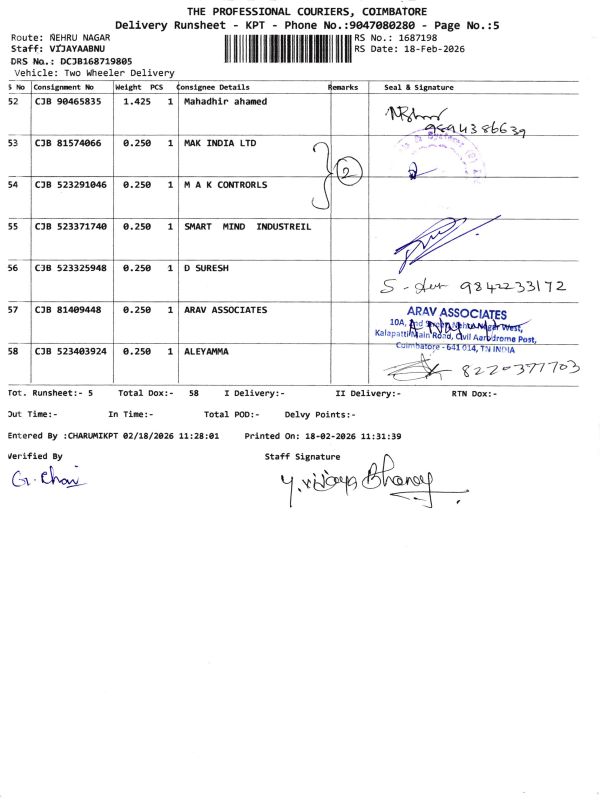 THE PROFESSIONAL COURIERS, COIMBATORE
Delivery Runsheet - KPT - Phone No.:9047080280 - Page No.:5
Route: NEHRU NAGAR
RS No.: 1687198
Staff: VIJAYAABNU
RS Date: 18-Feb-2026
DRS No.: DCJB168719805
Vehicle: Two Wheeler Delivery
S No Consignment No Weight PCS Consignee Details Remarks Seal & Signature
52 CJB 90465835 1.425 1 Mahadhir ahamed
9894386639
53 CJB 81574066 0.250 1 MAK INDIA LTD
2
54 CJB 523291046 0.250 1 M A K CONTRORLS
55 CJB 523371740 0.250 1 SMART MIND INDUSTREIL
56 CJB 523325948 0.250 1 D SURESH
9842233172
57 CJB 81409448 0.250 1 ARAV ASSOCIATES
ARAV ASSOCIATES
10A, 2nd Nehru Nagar West,
Kalapatti Main Road, Civil Aerodrome Post,
Coimbatore - 641 014, TN INDIA
58 CJB 523403924 0.250 1 ALEYAMMA
8220377703
Tot. Runsheet:- 5 Total Dox:- 58 I Delivery:- II Delivery:- RTN Dox:-
Out Time:- In Time:- Total POD:- Delvy Points:-
Entered By :CHARUMIKPT 02/18/2026 11:28:01 Printed On: 18-02-2026 11:31:39
Verified By Staff Signature